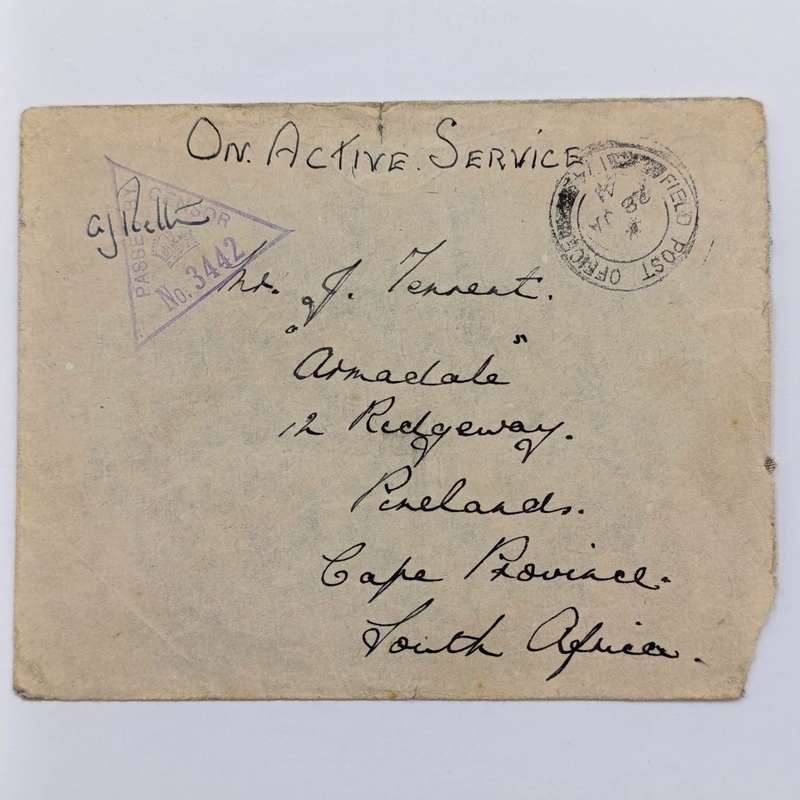 ON. ACTIVE. SERVICE
PASSED BY CENSOR
No. 3442
FIELD POST OFFICE
28 JA
Mr. J. Tennent.
"Armadale"
12 Ridgeway.
Pinelands.
Cape Province.
South Africa.